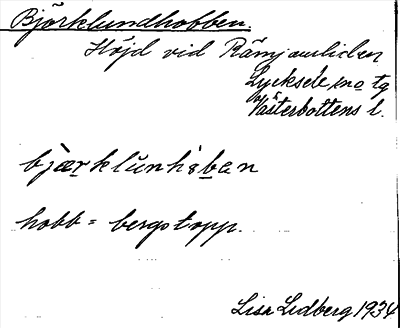 Björklundhobben.
Höjd vid Rämjaurliden
Lycksele sn o tg
Västerbottens l.
bjærklunhåban
hobb = bergstopp.
Lisa Lidberg 1934